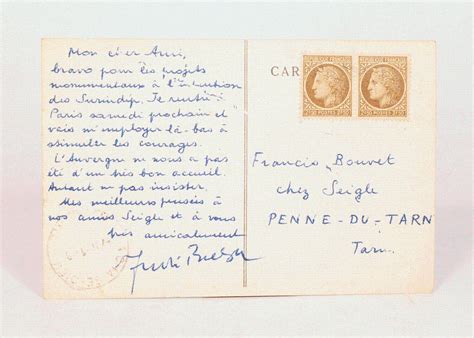 Mon cher Ami,
bravo pour les projets
monumentaux à l'intention
des Surindép. Je rentre à
Paris samedi prochain et
vais m'employer là-bas à
stimuler les courages.
L'Auvergne ne nous a pas
été d'un très bon accueil.
Autant ne pas insister.
Mes meilleures pensées à
nos amis Seigle et à vous
très amicalement
André Breton
CAR
Francis Bouvet
chez Seigle
PENNE-DU-TARN
Tarn